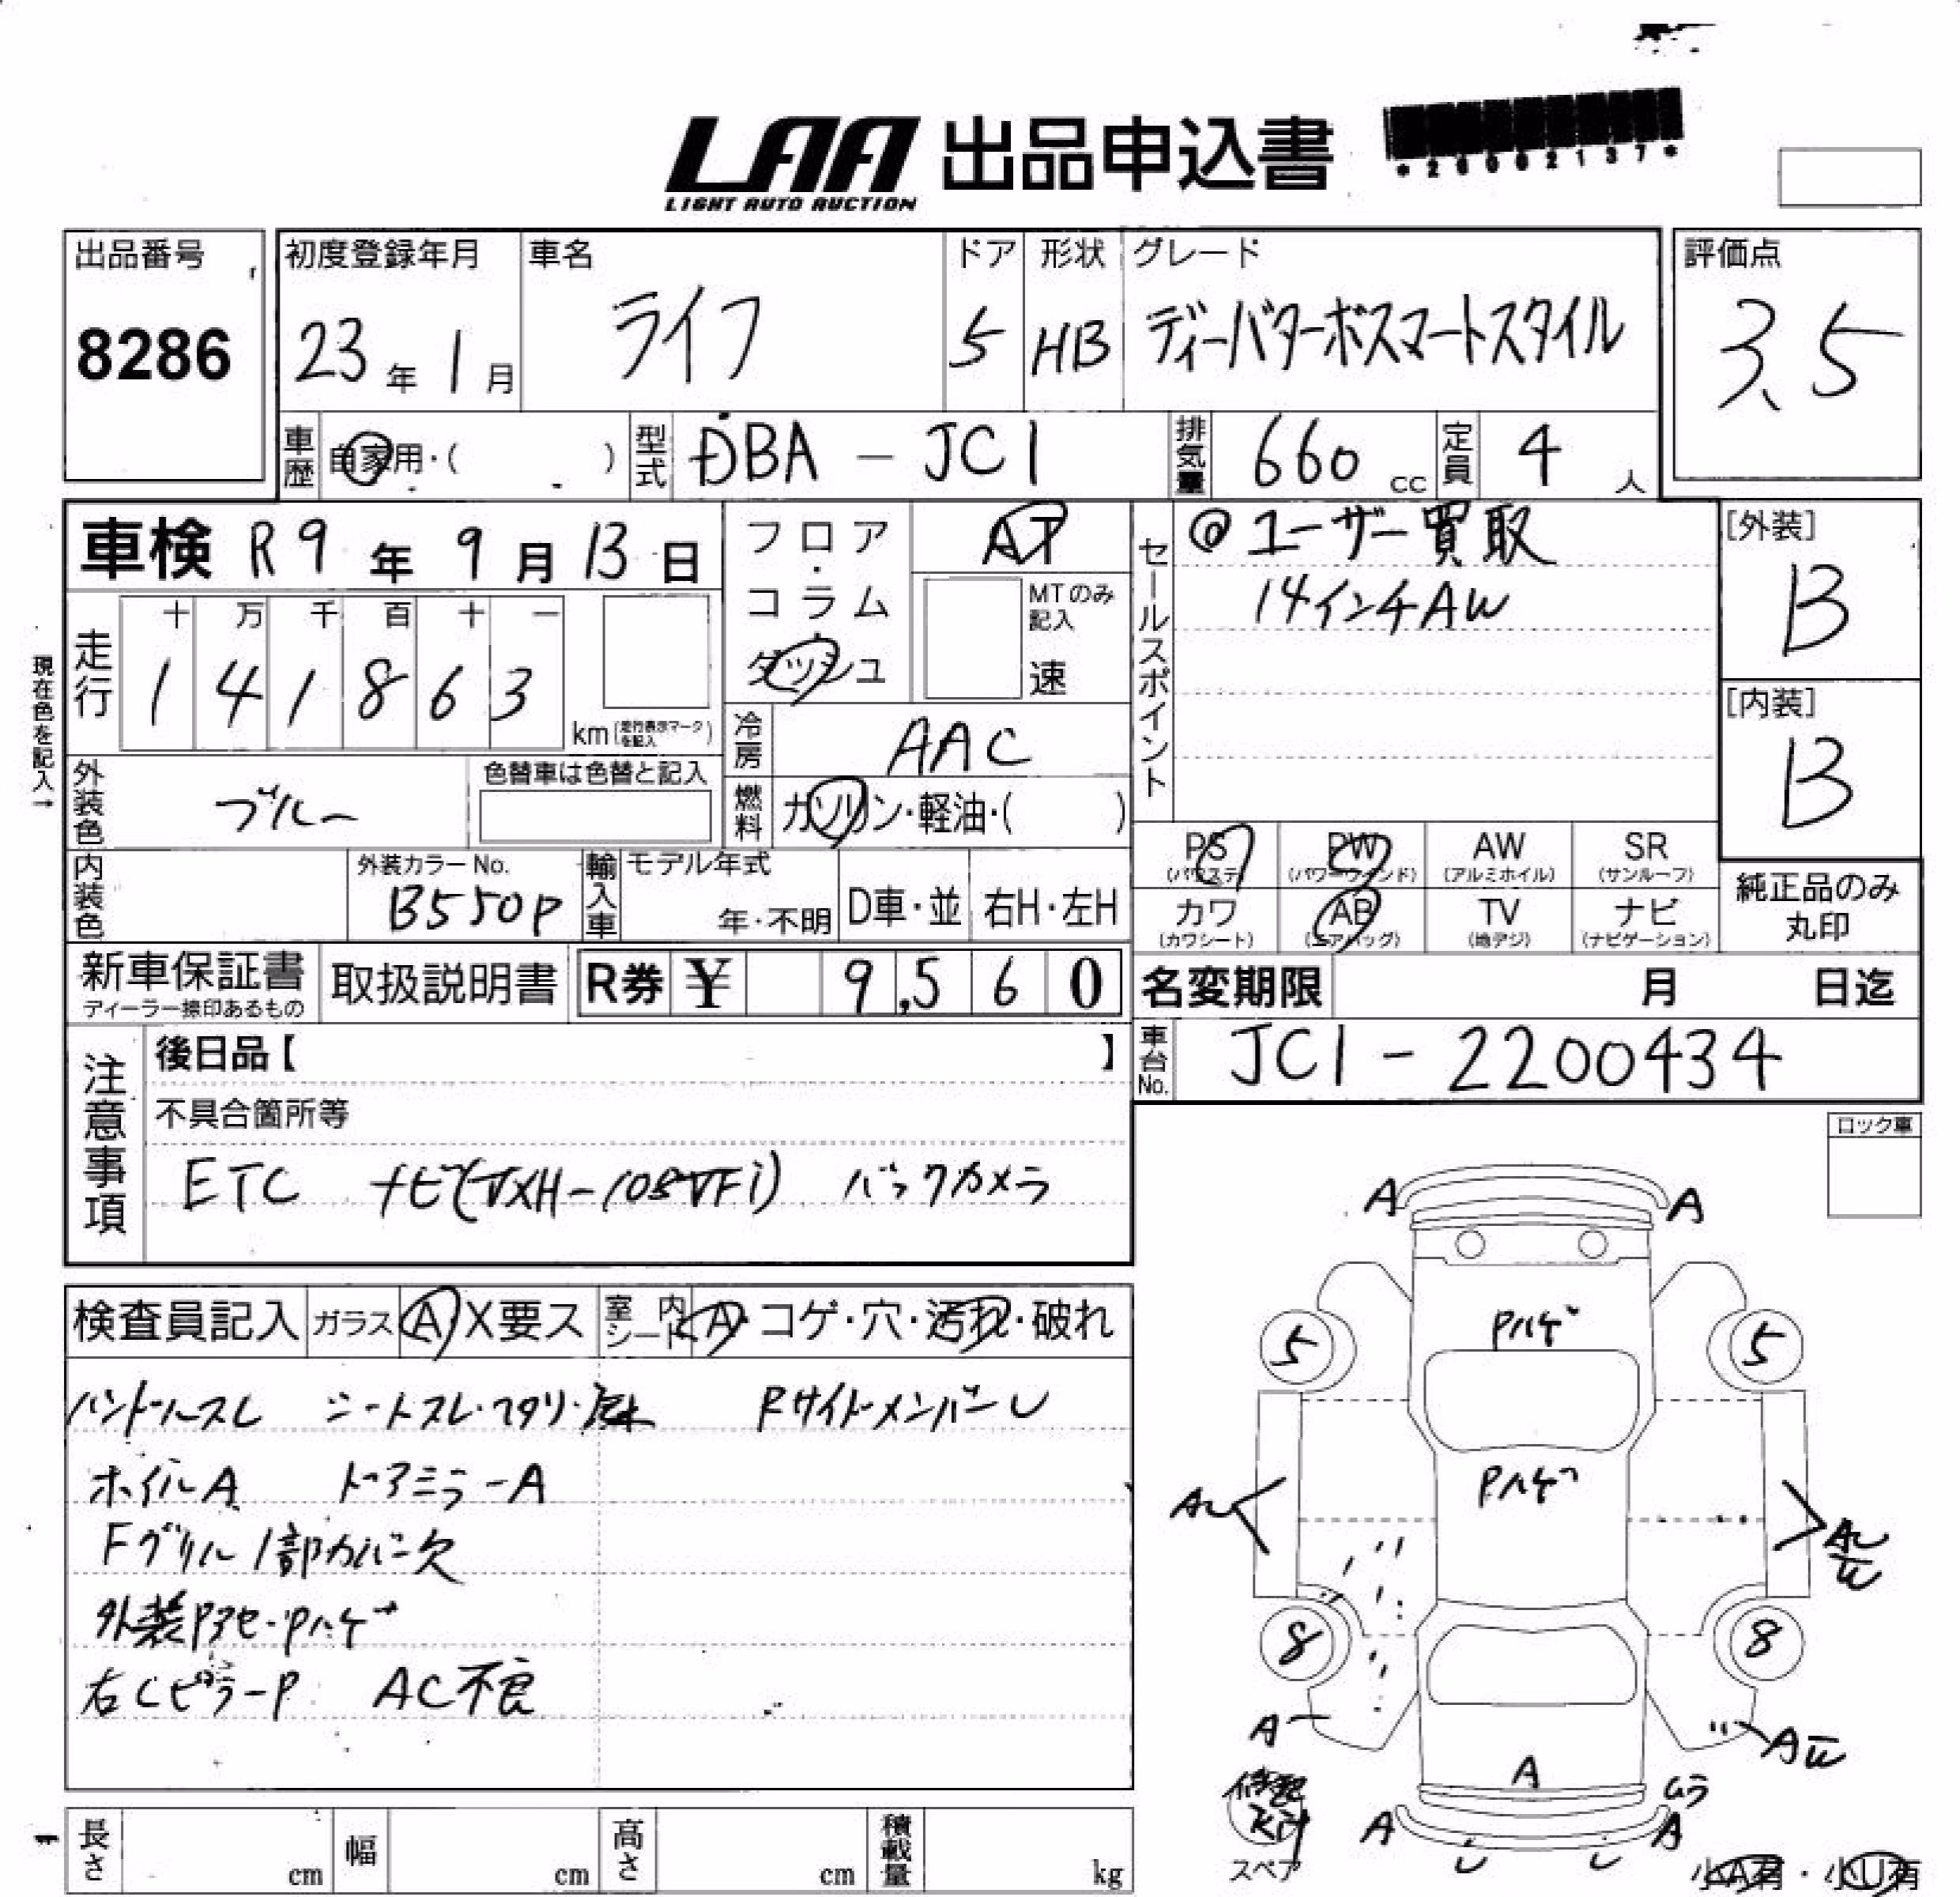 LAA 出品申込書
LIGHT AUTO AUCTION
*26002137*
出品番号
8286
初度登録年月
23年 1月
車名
ライフ
ドア
5
形状
HB
グレード
ディーバターボスマートスタイル
評価点
3.5
車歴 自家用・( )
型式 DBA - JC1
排気量 660 cc
定員 4 人
車検 R9年 9月 13日
現在色を記入→
走行
十 万 千 百 十 一
1 4 1 8 6 3
km (走行表示マークを記入)
フロア・コラム
ダッシュ
AT
MTのみ記入
速
冷房 AAC
燃料 ガソリン・軽油・( )
セールスポイント
@ユーザー買取
14インチAW
[外装]
B
[内装]
B
外装色 ブルー
色替車は色替と記入
内装色
外装カラーNo.
B550P
輸入車
モデル年式
年・不明
D車・並
右H・左H
PS (パワステ)
PW (パワーウインド)
AW (アルミホイル)
SR (サンルーフ)
カワ (カワシート)
AB (エアバッグ)
TV (地デジ)
ナビ (ナビゲーション)
純正品のみ丸印
新車保証書
ディーラー捺印あるもの
取扱説明書
R券 ¥ 9,560
名変期限 月 日迄
車台No. JC1 - 2200434
注意事項
後日品【 】
不具合箇所等
ETC ナビ(VXH-108VFi) バックカメラ
ロック車
検査員記入
ガラス A X要ス
室内シート A・コゲ・穴・汚れ・破れ
ハンドルスレ シートスレ・ヘタリ・ RサイドメンバーU
ホイルA ドアミラーA
Fグリル1部カバー欠
外装Pアセ・Pハゲ
右CピラーP AC不良
A A
Pハゲ
5 5
Pハゲ
AU
AU
W
8 8
A
AW
A
ムラ
A A
U U
修理
キット
スペア
小A有・小U有
長さ cm
幅 cm
高さ cm
積載量 kg